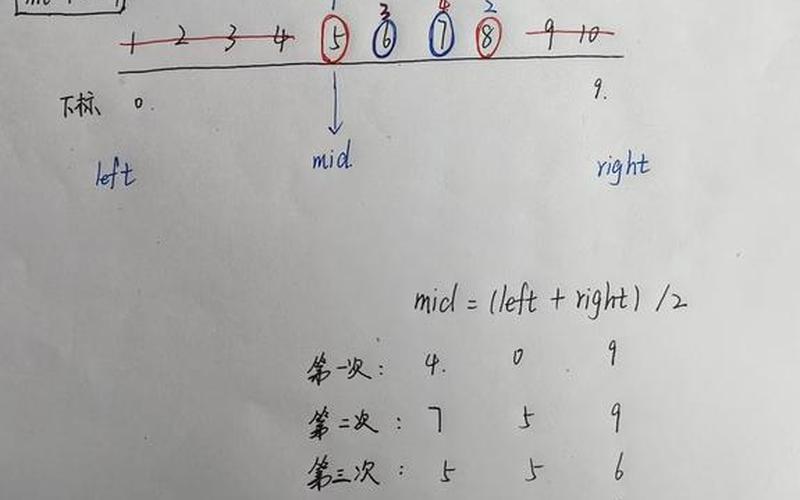 1 3 4 2
1 2 3 4 5 6 7 8 9 10
下标、 0. 9.
left mid right
mid = (left + right) /2
第一次: 4. 0 . 9
第二次: 7 5 9
第三次: 5 5 6